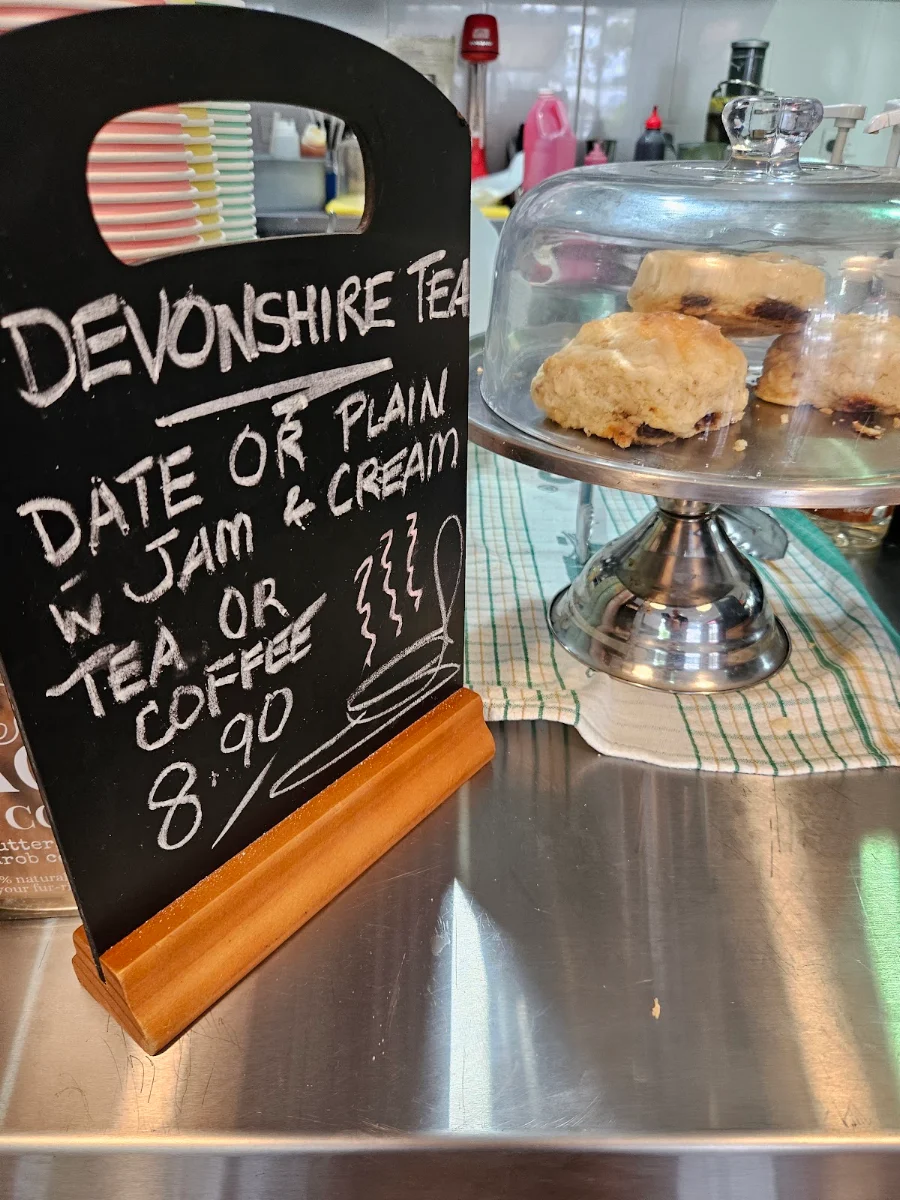 DEVONSHIRE TEA
DATE OR PLAIN
W JAM & CREAM
TEA OR
COFFEE
8.90
% natural
your fur-